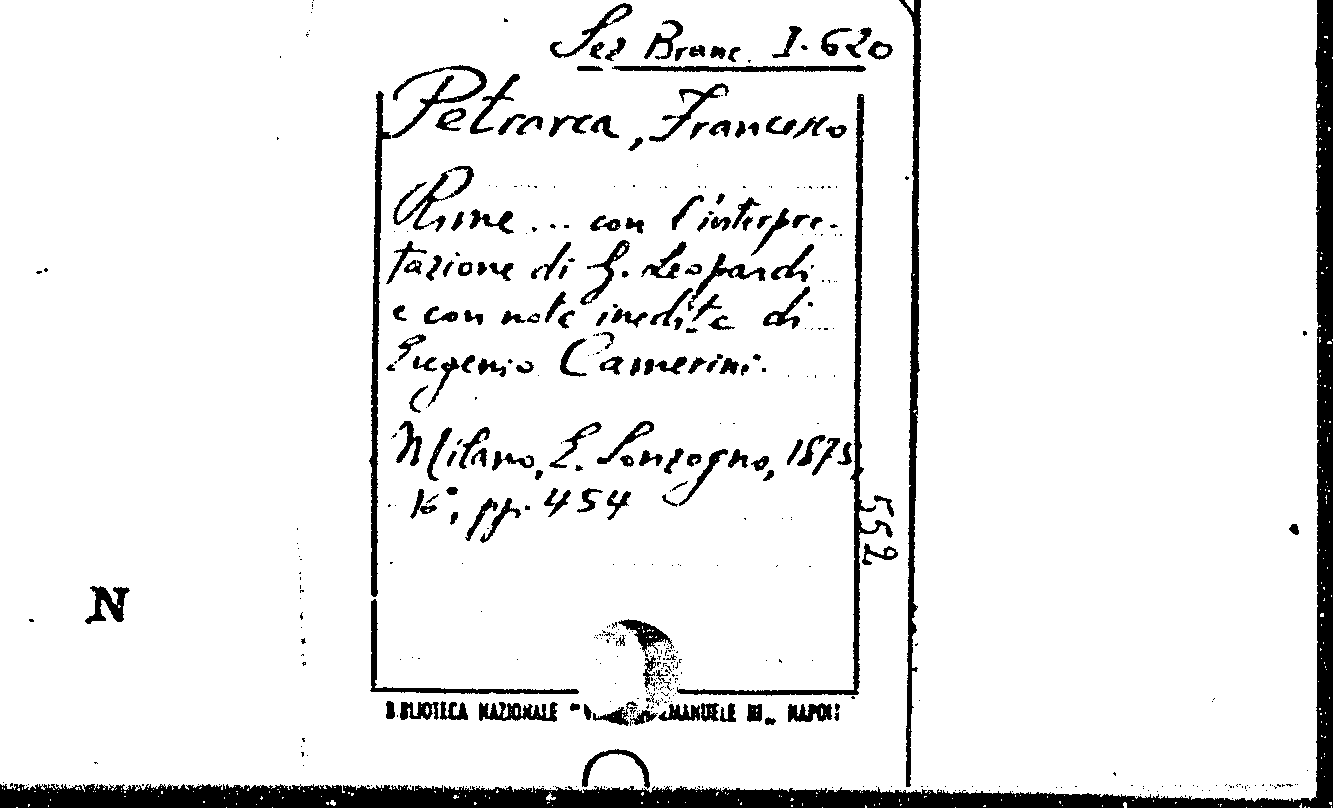 Sez Branc. I. 620
Petrarca, Francesco
Rime ... con l'interpre-
tazione di G. Leopardi
e con note inedite di
Eugenio Camerini.
Milano, E. Sonzogno, 1875,
16°, pp. 454
552
N
BIBLIOTECA NAZIONALE " EMANUELE III„ NAPOLI